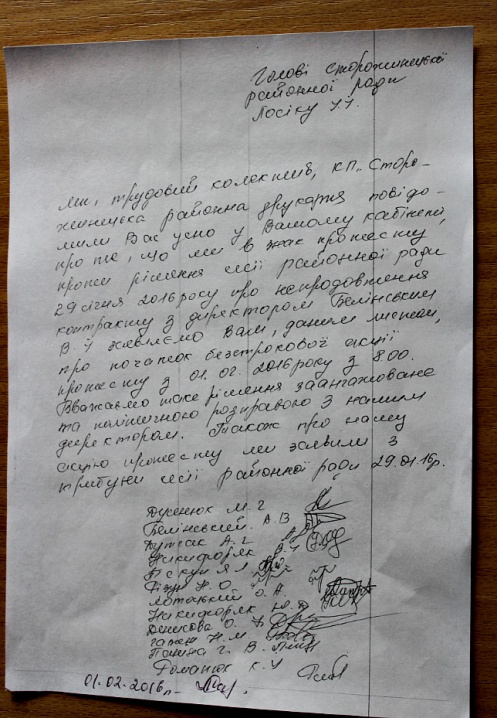 Голові сторожинецької
районної ради
Лосіку І.І.
Ми, трудовий колектив, КП „Сторо-
жинецька районна друкарня повідо-
мили Вас усно у Вашому кабінеті,
про те, що ми в знак протесту,
проти рішення сесії районної ради
29 січня 2016 року про непродовження
контракту з директором Белінським
В. Й заявляємо Вам, даним листом,
про початок безстрокової акції
протесту з 01.02.2016 року з 8 00.
Вважаємо таке рішення заангажоване
та політичною розправою з нашим
директором. Також про нашу
акцію протесту ми заявили з
трибуни сесії районної ради 29.01.16р.
М. Г
Белінський. А. В
А. Г
Никифоряк
Н. О
О. А.
Никифоряк Ю. В
Денисова О.
Н. М
Паніна Г. В.
Романюк К. У
01.02.2016 р.